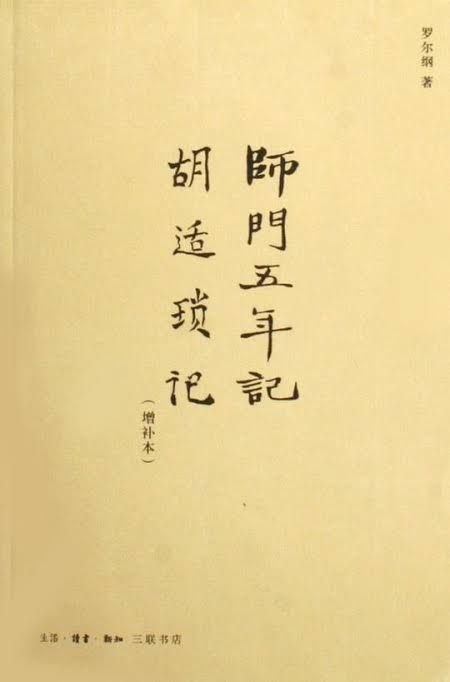 罗尔纲 著
師門五年記
胡适瑣记
（增补本）
生活·讀書·新知 三联书店